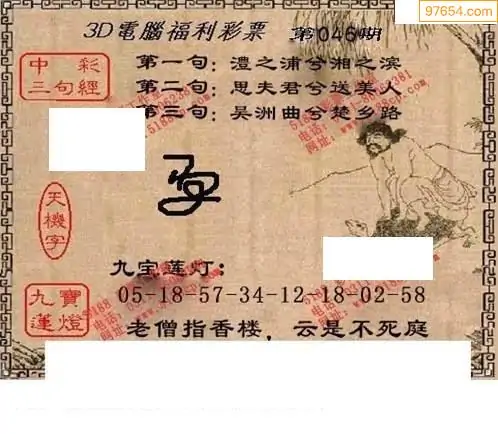 97654.com
3D電腦福利彩票 第046期
中彩
三句經
第一句:澧之浦兮湘之滨
第二句:思夫君兮送美人
第三句:吴洲曲兮楚乡路
天機字
九宝莲灯:
九寶
蓮燈
05-18-57-34-12,18-02-58
老僧指香楼,云是不死庭